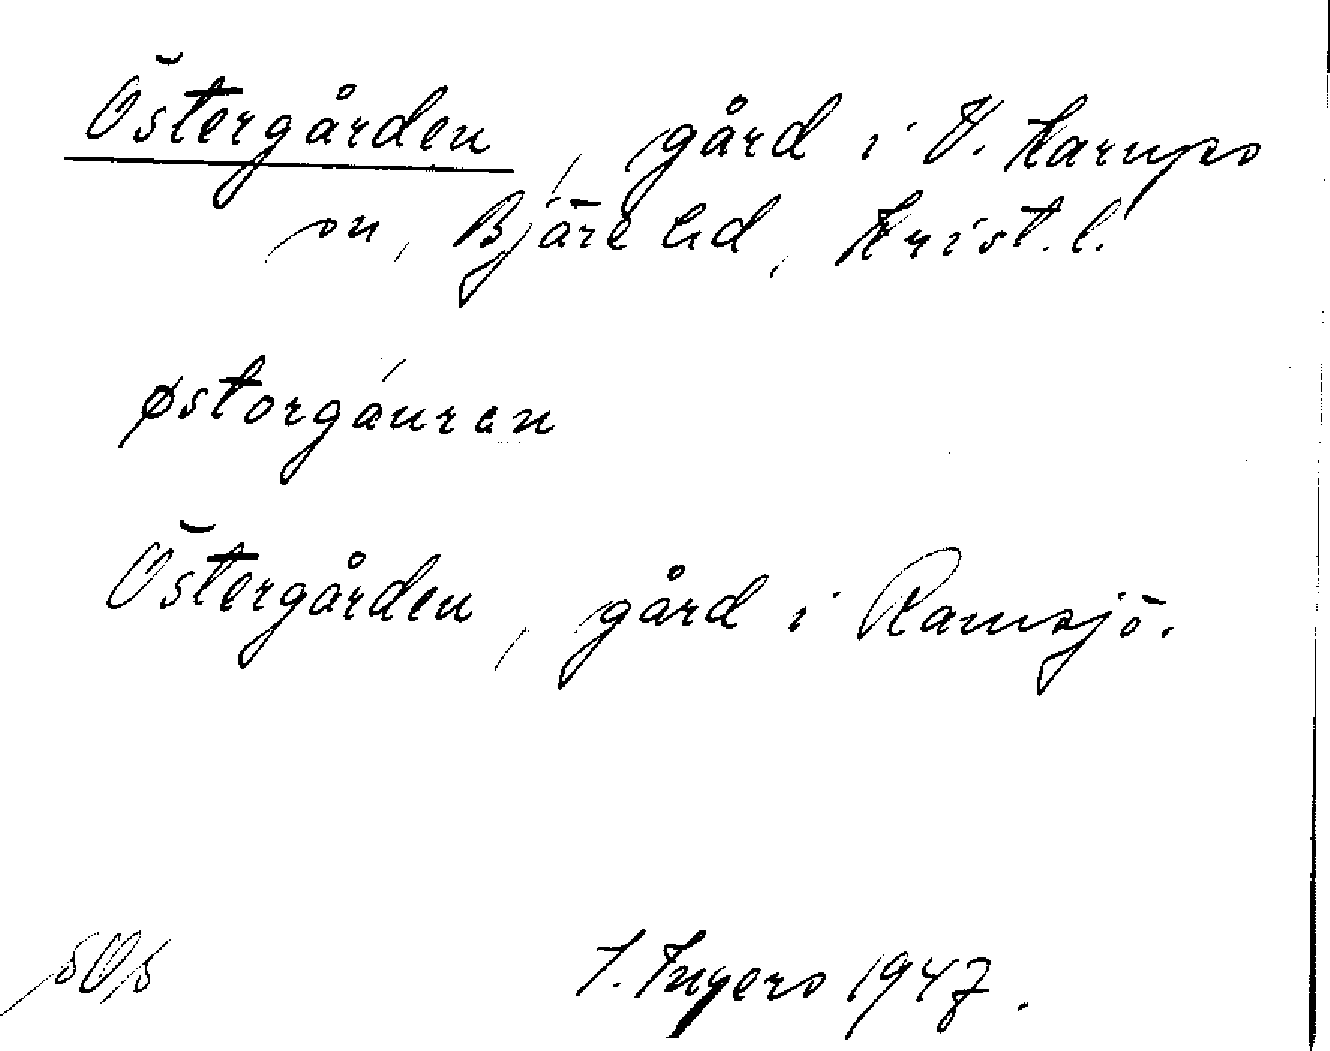 Östergården, gård i V. Karups
sn, Bjäre hd, Krist. l.
østorgáuran
Östergården, gård i Ramsjö.
I. Ingers 1947.